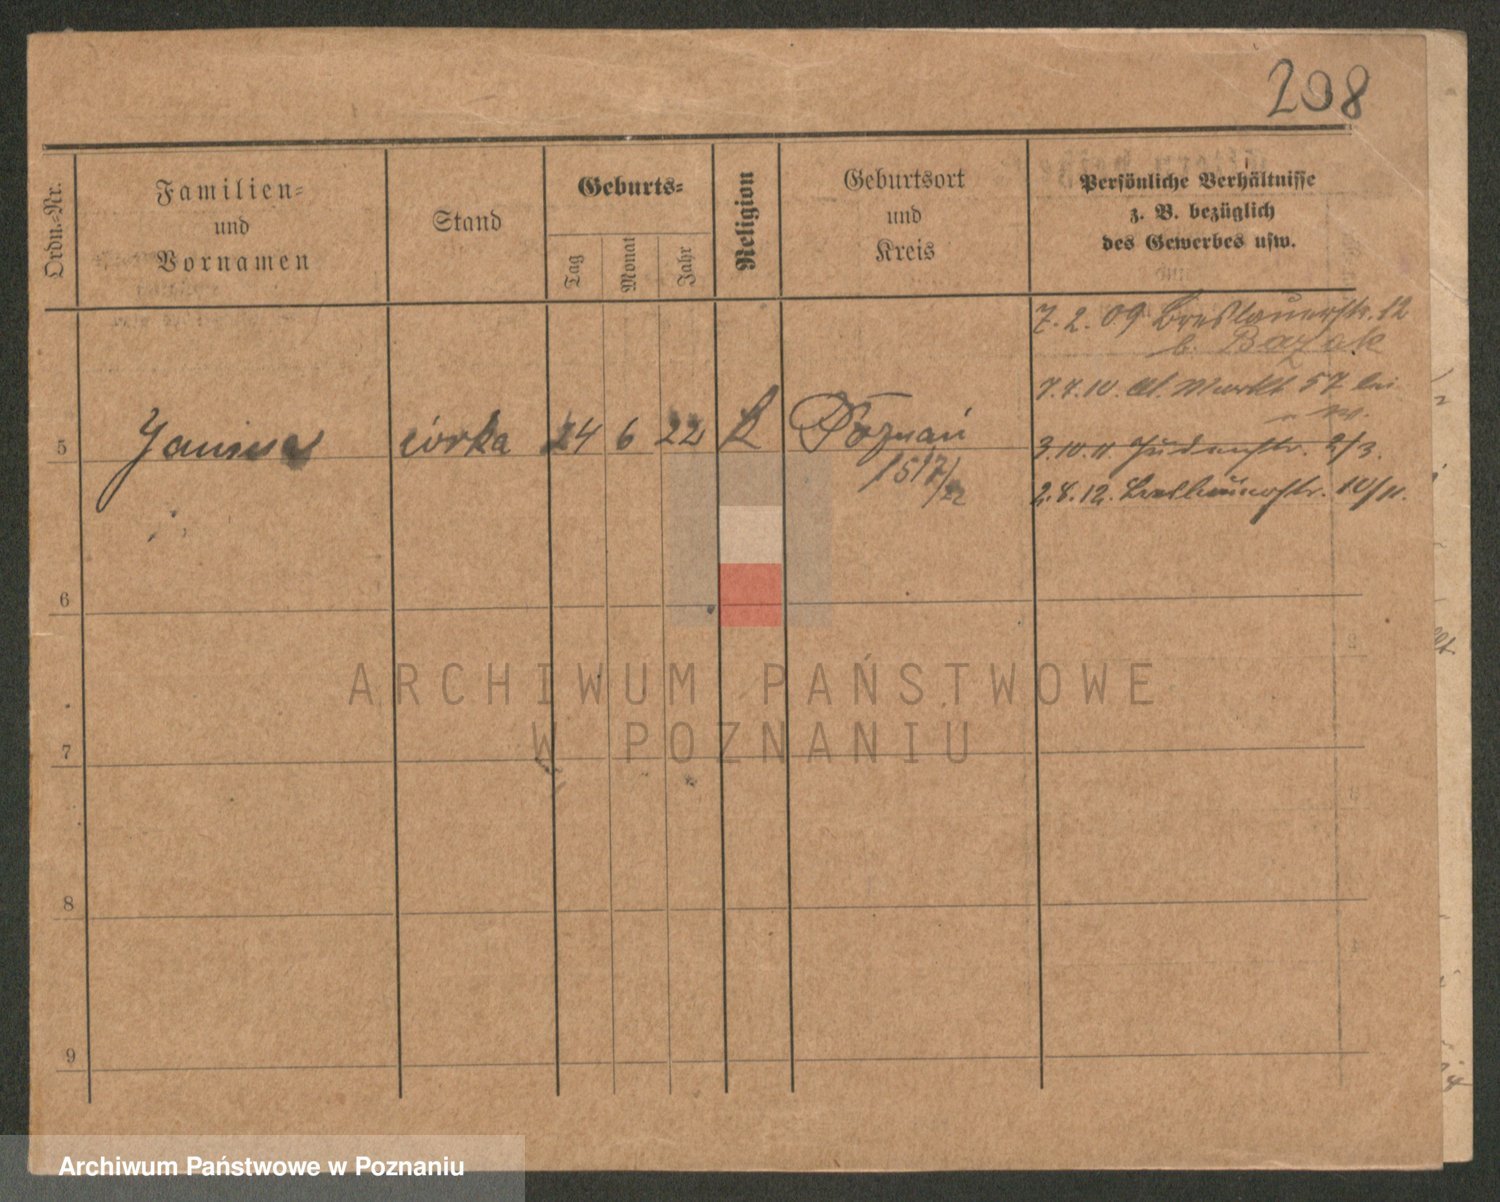 208
Ordn.-Nr.
Familien-
und
Vornamen
Stand
Geburts-
Tag
Monat
Jahr
Religion
Geburtsort
und
Kreis
Persönliche Verhältnisse
z. B. bezüglich
des Gewerbes usw.
7. 2. 09 Breslauerstr. 12
b. Bazak
7.7.10. Al. Markt 57 bei
5 Janina córka 24 6 22 K Poznań
3.10.11 Judenstr. 2/3.
1517/22
2.8.12. Breslauerstr. 10/11.
6
7
8
9
ARCHIWUM PAŃSTWOWE
W POZNANIU
Archiwum Państwowe w Poznaniu